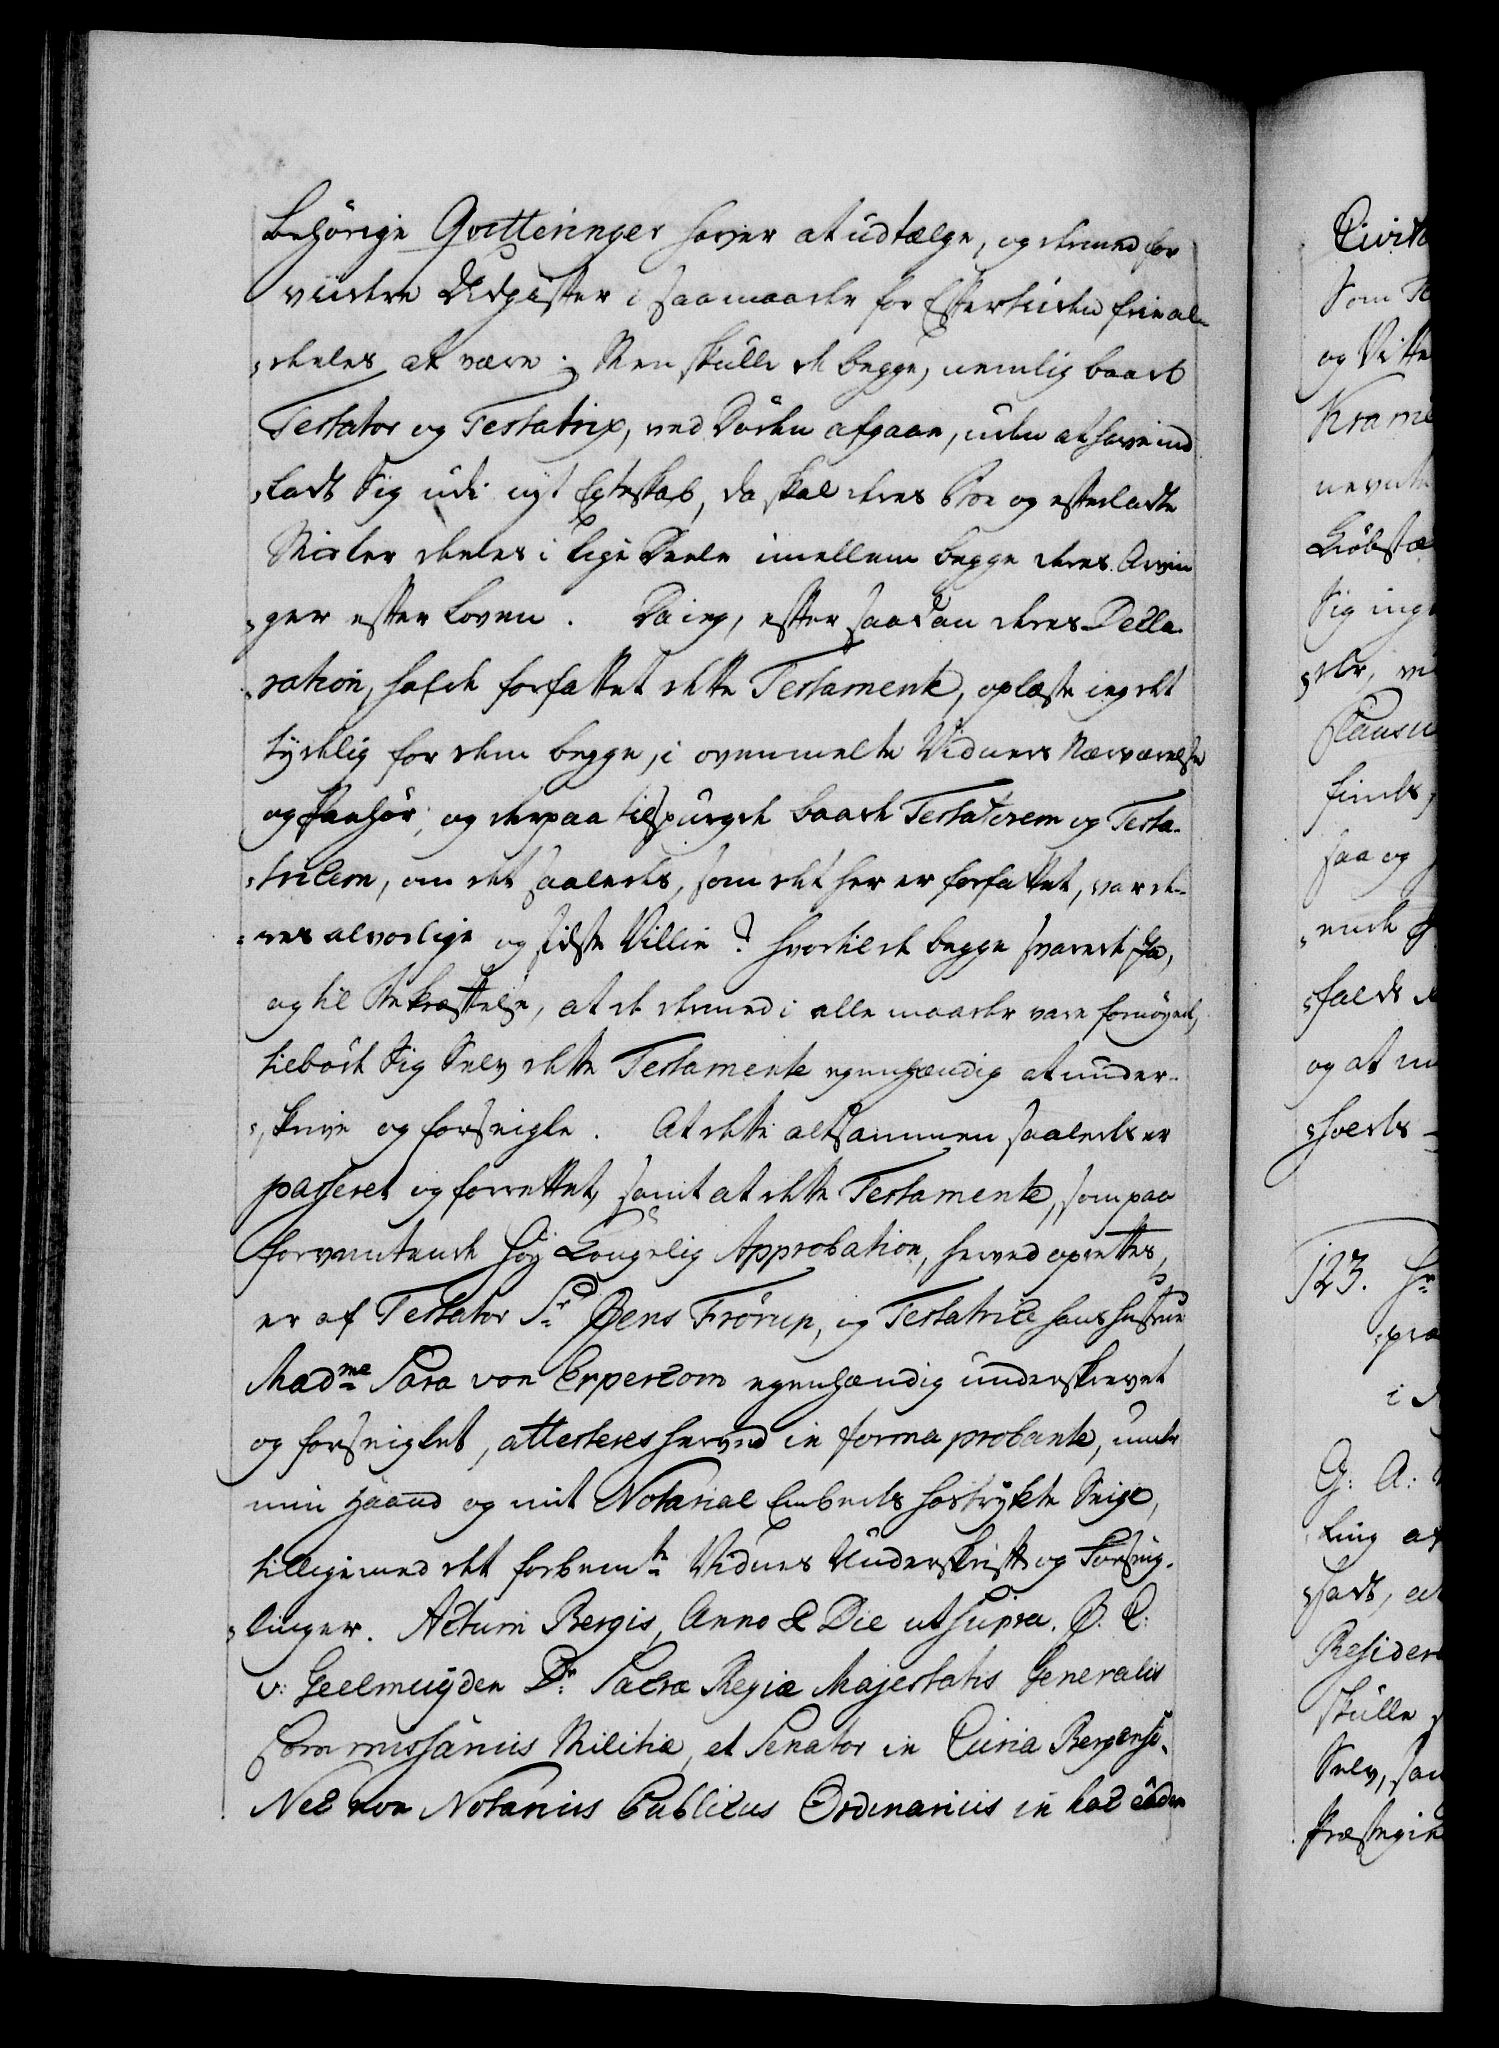 behørige Qvitteringer haver at udtælge, og dermed for
viidere Udgifter i saamaade for Eftertiden frie al-
deeles at være; Men skulle de begge, nemlig baade
Testator og Testatrix, ved Døden afgaae, uden at have ind
ladt Sig udi nyt Egteskab, da skal deres Boe og efterladte
Midler deeles i lige Deele imellem begge deres Arvin
ger efter Loven. Da ieg, efter saadan deres Decla-
ration, hafde forfattet dette Testamente, oplæste ieg det
tydelig for dem begge, i ovenmelte Vidners Nærværelse
og Paahør, og derpaa tilspurgde baade Testatorem og Testa-
tricem, om det saaledes, som det her er forfattet, var de-
res alvorlige og sidste Villie? hvortil de begge svarede Ja,
og til Bekræftelse, at de dermed i alle maader vare fornøyede,
tilbød Sig Selv dette Testamente egenhændig at under-
skrive og forseigle. At dette altsammen saaledes er
passeret og forrettet, samt at dette Testamente, som paa
forventende høy Kongelig Approbation, herved oprettes,
er af Testator Sr. Jens Frörup, og Testatrice hans Hustrue
Madme Sara von Erpecom egenhændig underskrevet
og forseiglet, attesteres herved in forma probante, under
min Haand og mit Notarial Embeds hostrykte Seigl,
tilligemed det forbemte Vidnes Underskrift og Forseig-
linger. Actum Bergis, Anno & Die ut supra. J. C:
v: Geelmuyden Dr. Sacræ Regiæ Majestatis Generalis
Commissarius Militiæ, et Senator in Curia Bergensi,
Nec non Notarius Publicus Ordinarius in hac eadem